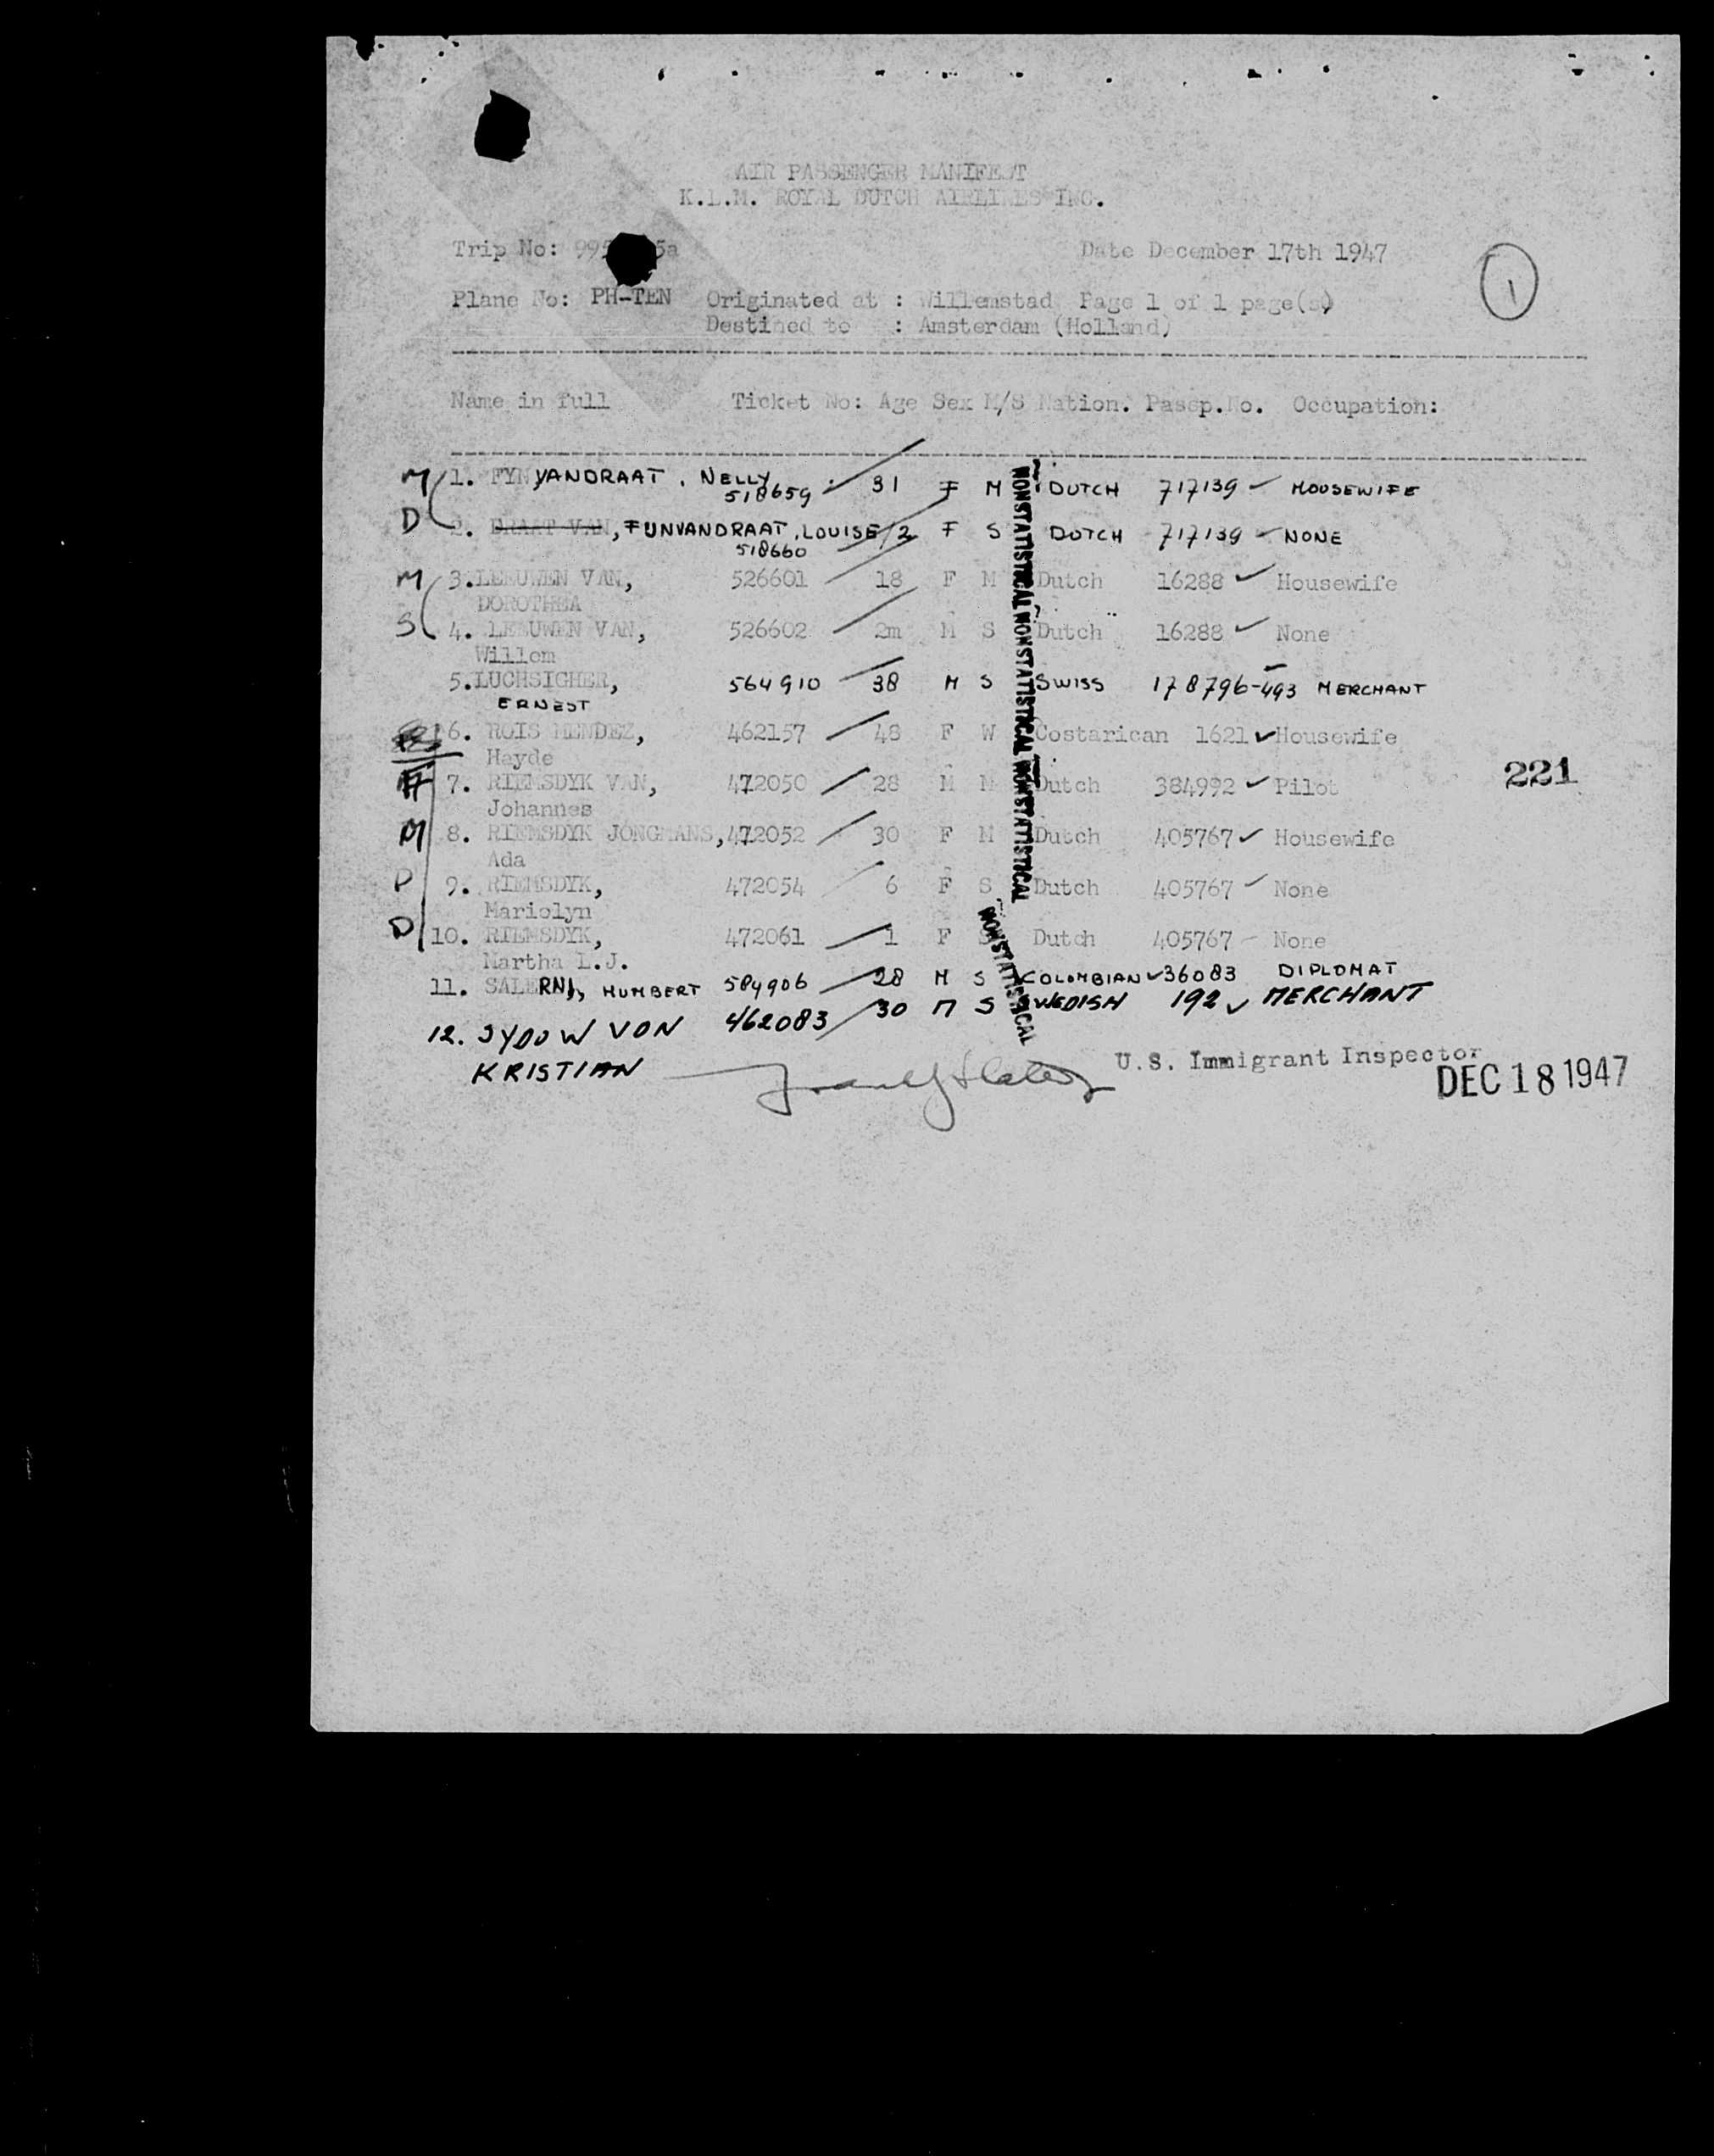 AIR PASSENGER MANIFEST
K.L.M. ROYAL DUTCH AIRLINES INC.
Trip No: 99 5a Date December 17th 1947
Plane No: PH-TEN Originated at : Willemstad Page 1 of 1 page(s)
1
Destined to : Amsterdam (Holland)
Name in full Ticket No: Age Sex M/S Nation. Passp.No. Occupation:
M 1. FYN VANDRAAT, NELLY 518659 31 F M DUTCH 717139 HOUSEWIFE
D 2. DRAAT VAN, FUNVANDRAAT, LOUISE 2 F S DUTCH 717139 NONE
518660
M 3. LEEUWEN VAN, 526601 18 F M Dutch 16288 Housewife
DOROTHEA
S 4. LEEUWEN VAN, 526602 2m M S Dutch 16288 None
Willem
5. LUCHSIGHER, 564910 38 M S SWISS 178796-493 MERCHANT
ERNEST
6. ROIS MENDEZ, 462157 48 F W Costarican 1621 Housewife
Hayde
H 7. RIEMSDYK VAN, 472050 28 M M Dutch 384992 Pilot
221
Johannes
M 8. RIEMSDYK JONGMANS, 472052 30 F M Dutch 405767 Housewife
Ada
D 9. RIEMSDYK, 472054 6 F S Dutch 405767 None
Mariolyn
D 10. RIEMSDYK, 472061 1 F S Dutch 405767 None
Martha L.J.
11. SALERNI, HUMBERT 584906 28 M S COLOMBIAN 36083 DIPLOMAT
12. SYDOW VON 462083 30 M S SWEDISH 192 MERCHANT
KRISTIAN
NONSTATISTICAL NONSTATISTICAL NONSTATISTICAL
NONSTATISTICAL
U.S. Immigrant Inspector
DEC 18 1947